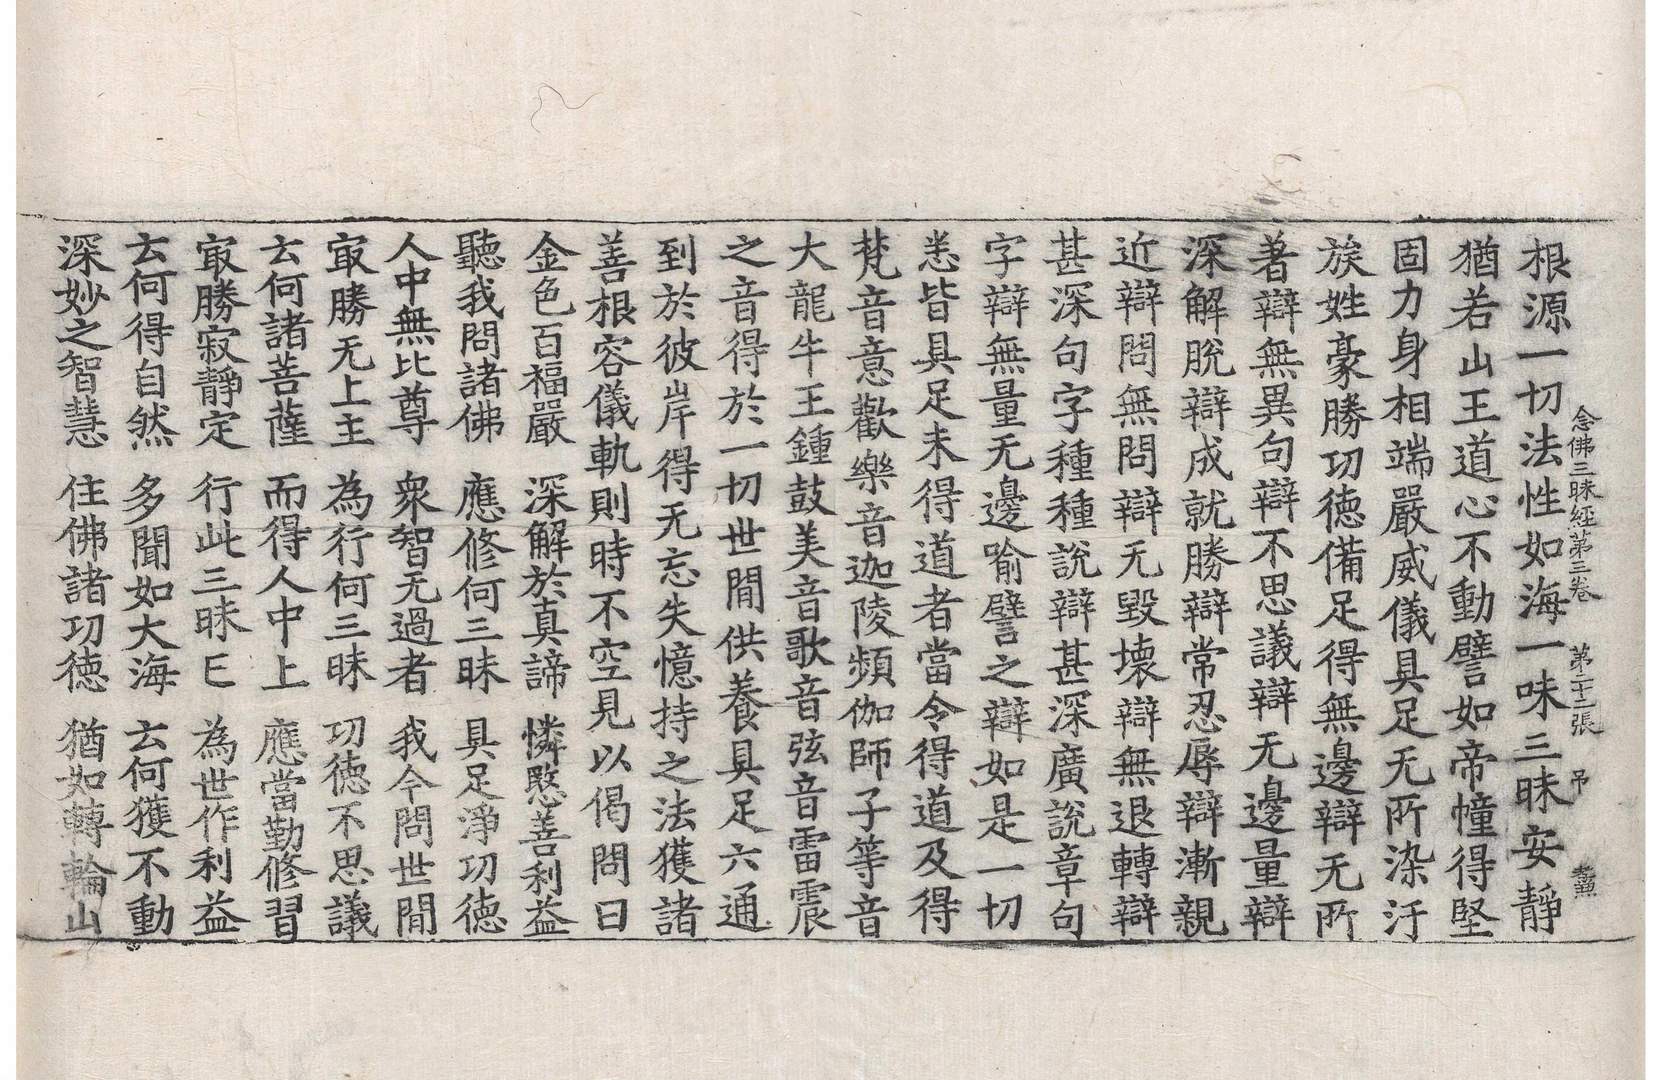 念佛三昧経第三卷 第二十二張 吊
根源一切法性如海一味三昧安靜
猶若山王道心不動譬如帝幢得堅
固力身相端嚴威儀具足无所染汙
族姓豪勝功德備足得無邊辯无所
著辯無異句辯不思議辯无邊量辯
深解脫辯成就勝辯常忍辱辯漸親
近辯問無問辯无毀壞辯無退轉辯
甚深句字種種說辯甚深廣說章句
字辯無量无邊喻譬之辯如是一切
悉皆具足未得道者當令得道及得
梵音意歡樂音迦陵頻伽師子等音
大龍牛王鍾鼓美音歌音弦音雷震
之音得於一切世間供養具足六通
到於彼岸得无忘失憶持之法獲諸
善根容儀軌則時不空見以偈問曰
金色百福嚴 深解於真諦 憐愍善利益
聽我問諸佛 應修何三昧 具足淨功德
人中無比尊 衆智无過者 我今問世間
㝡勝无上主 為行何三昧 功德不思議
云何諸菩薩 而得人中上 應當勤修習
㝡勝寂靜定 行此三昧已 為世作利益
云何得自然 多聞如大海 云何獲不動
深妙之智慧 住佛諸功德 猶如轉輪山